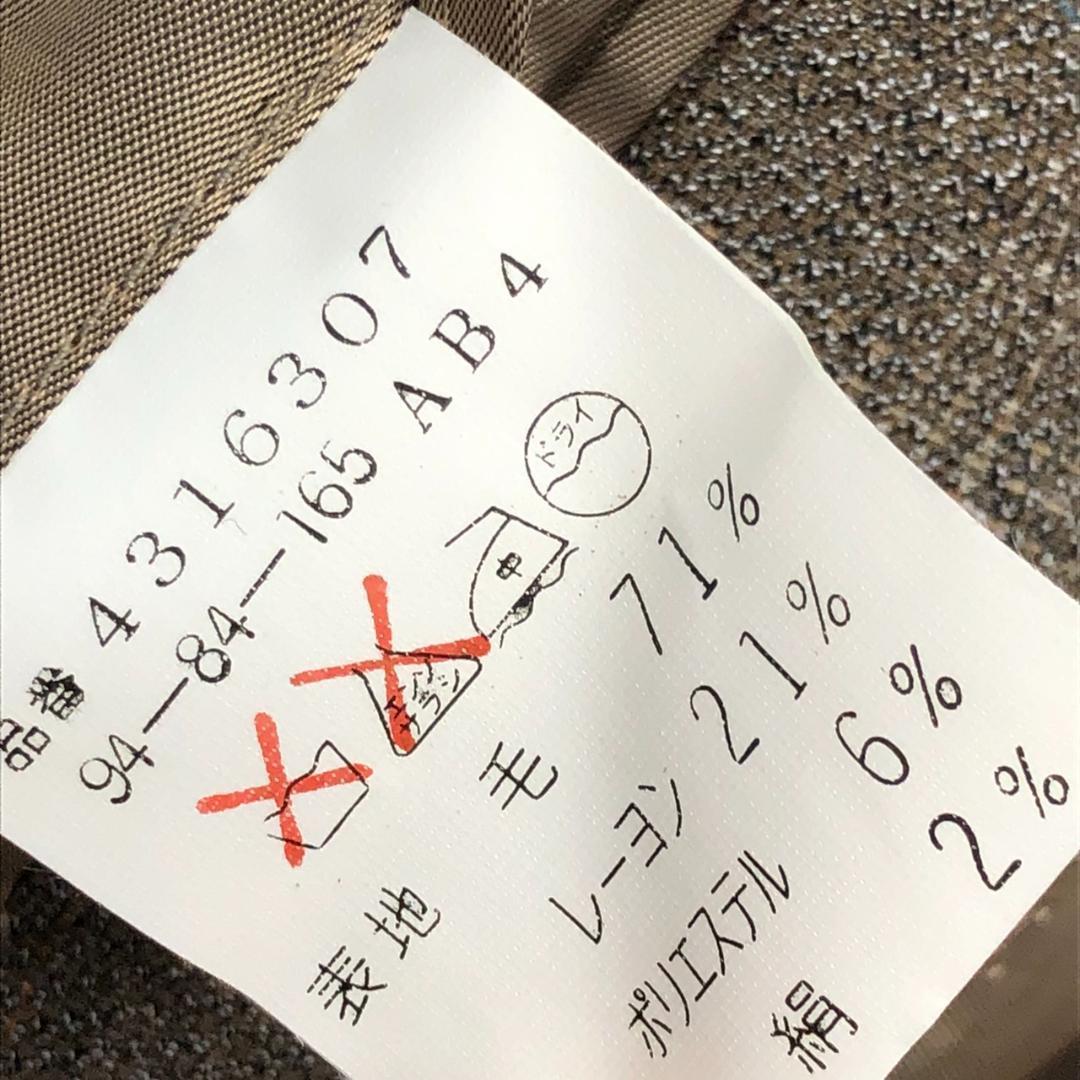 品番 4316307
94-84-165 AB4
エンソサラシ
中
ドライ
表地
毛 71%
レーヨン 21%
ポリエステル 6%
絹 2%